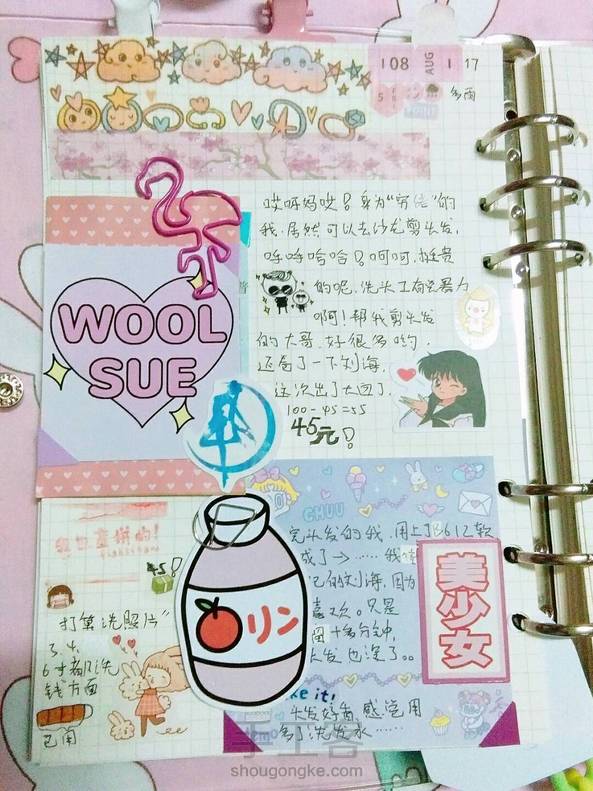 108 AUG 1 17
多雨
哎呀妈哎!身为"穷结"的
我,居然可以去沙龙剪头发,
哈哈哈哈!呵呵,挺贵
的呢,洗头工有
啊!帮我剪头发
的大哥,好很多哟,
还卷了一下刘海,
这次出了大回了,
100-45=55
45元!
WOOL
SUE
CHUU
完头发的我,用上了B612软
成了→……我
的刘海,因为
喜欢。只是
十多分钟,
头发也没了。。
美少女
リン
打算洗照片"
3、4、
6寸都洗
钱方面
已用
ke it!
头发好香 感觉用
多了洗发水……
手工客
shougongke.com